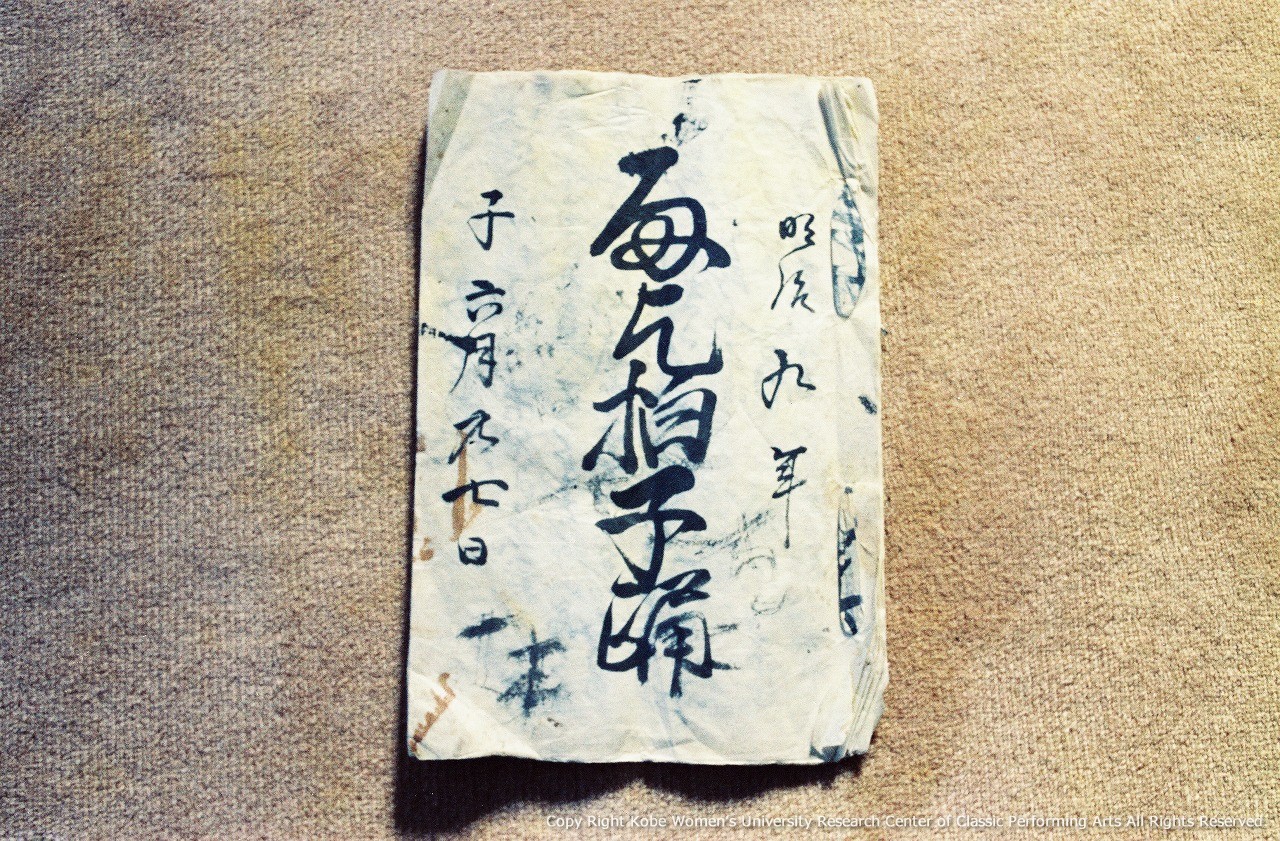 明治九年
雨乞拍子踊
子六月七日
Copy Right Kobe Women's University Research Center of Classic Performing Arts All Rights Reserved.